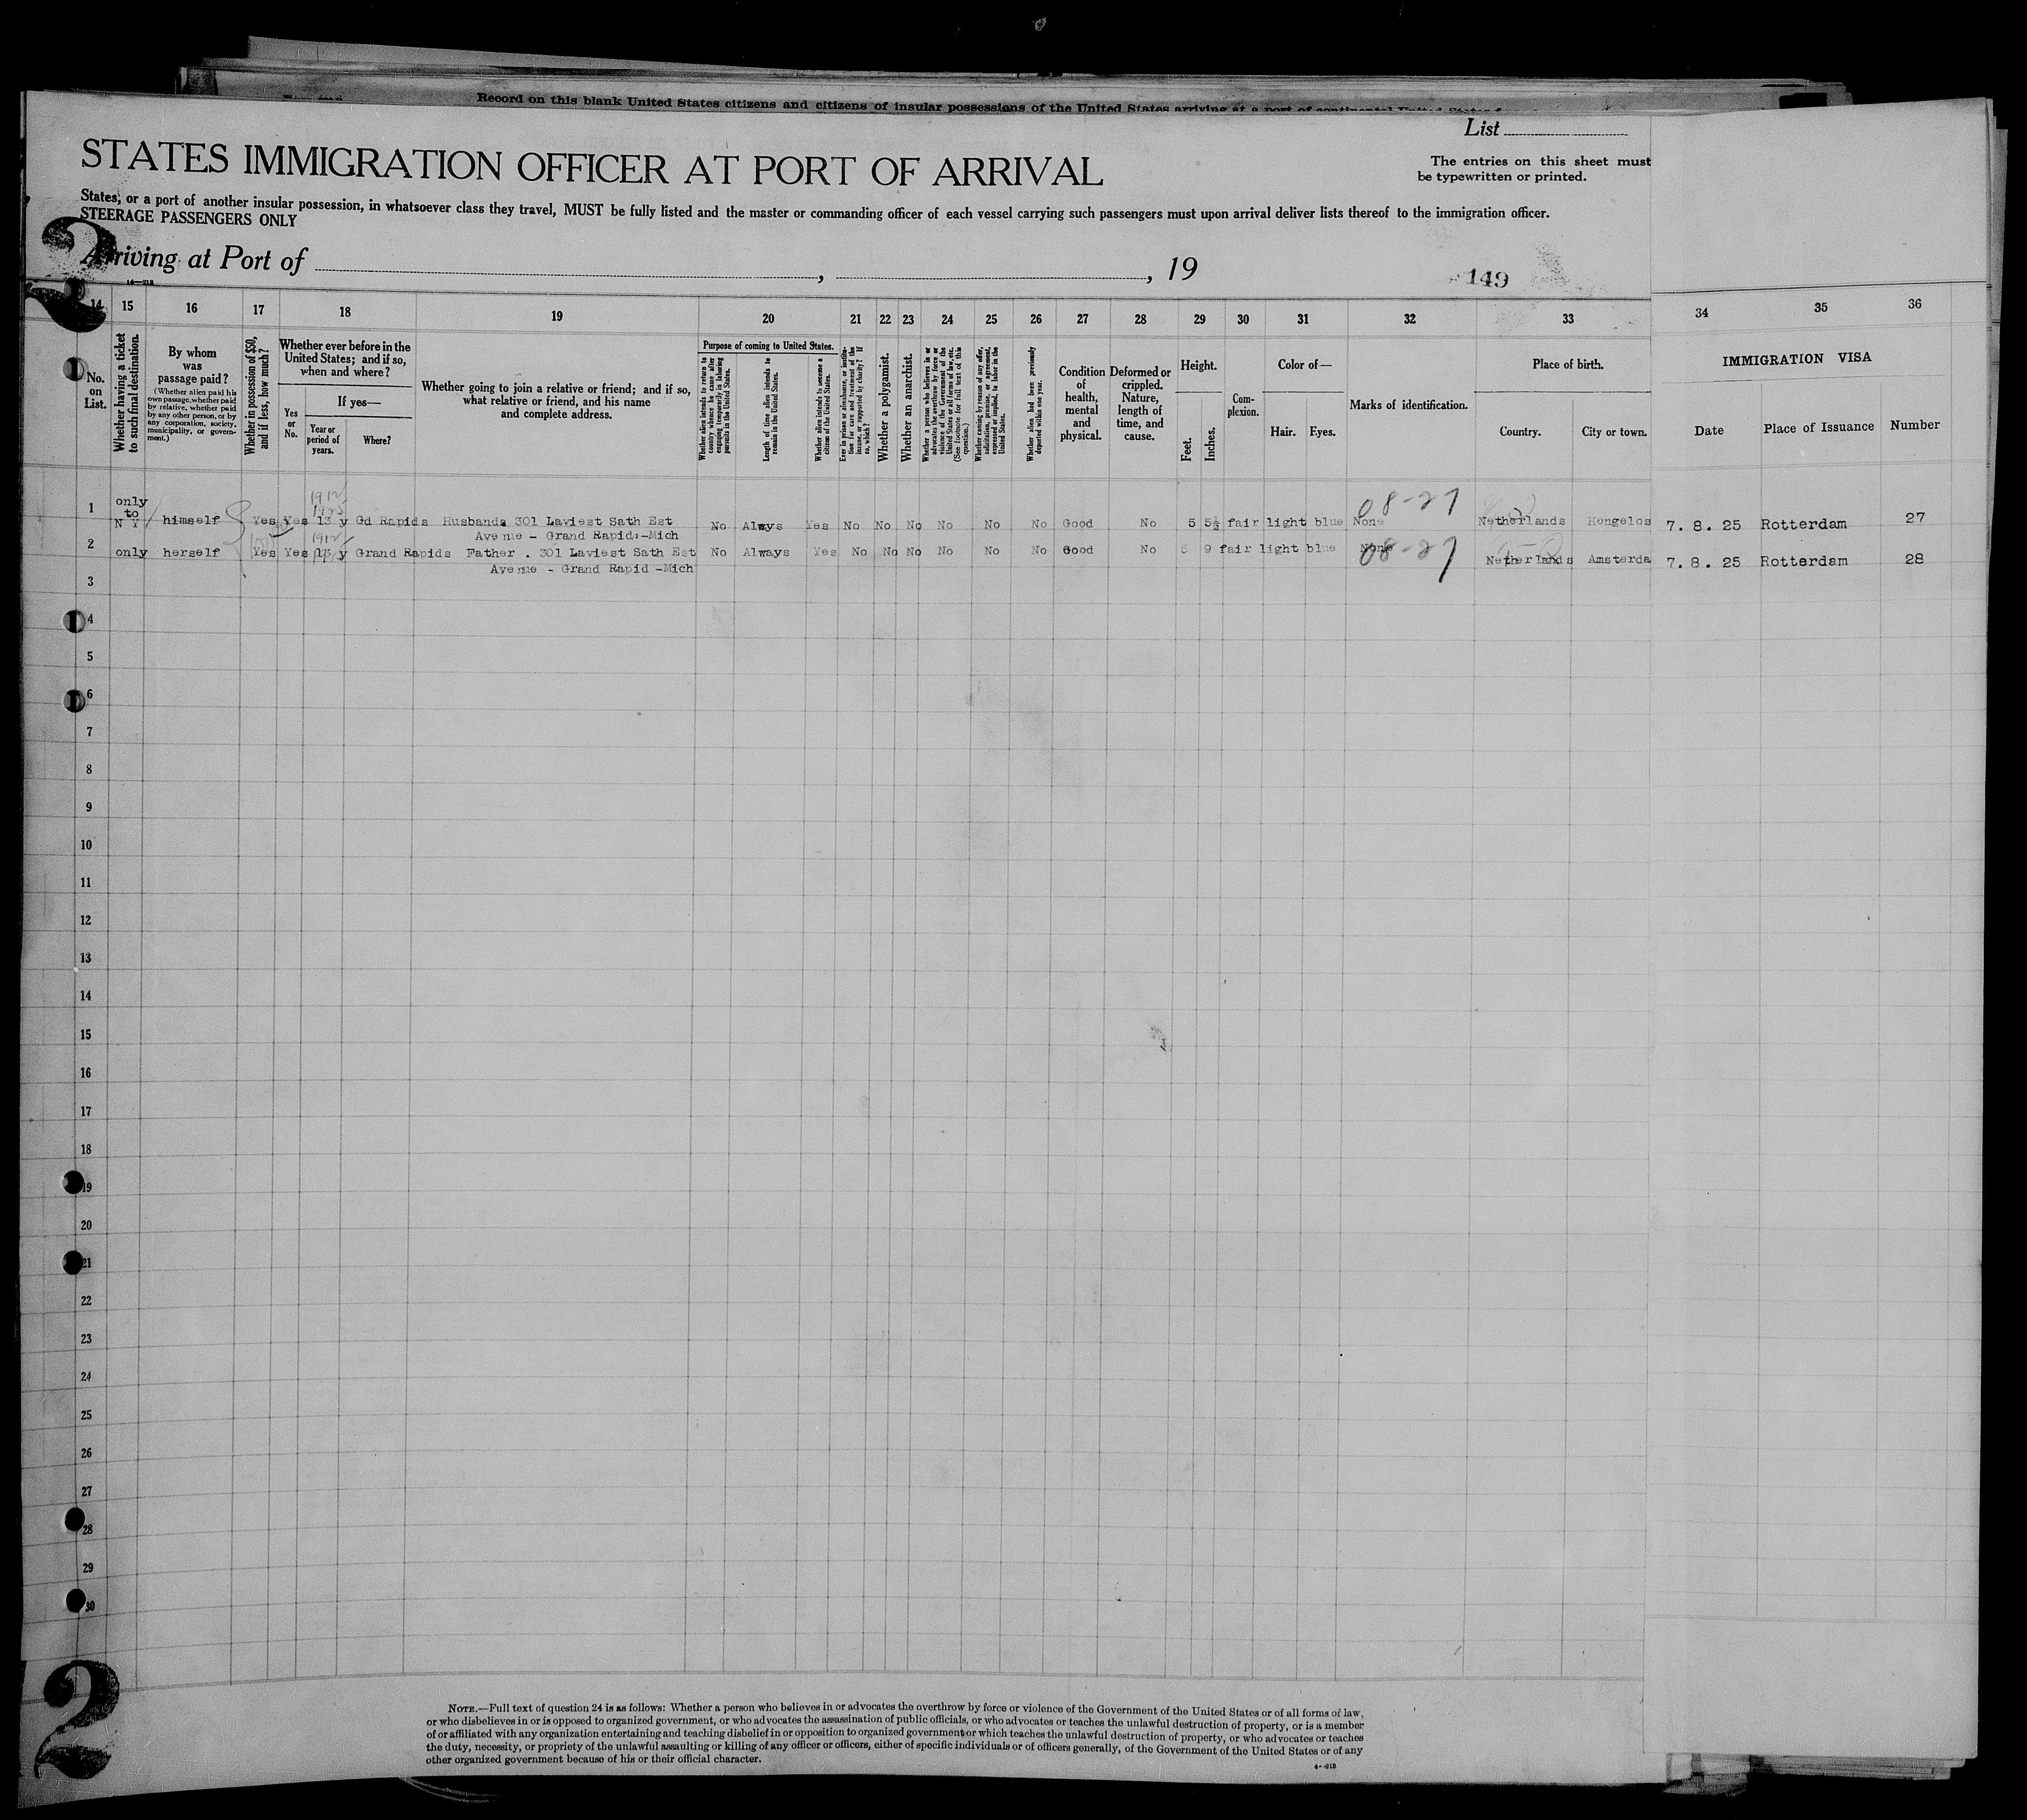 Record on this blank United States citizens and citizens of insular possessions of the United States arriving at a port of continental United States
List
STATES IMMIGRATION OFFICER AT PORT OF ARRIVAL
The entries on this sheet must
be typewritten or printed.
States, or a port of another insular possession, in whatsoever class they travel, MUST be fully listed and the master or commanding officer of each vessel carrying such passengers must upon arrival deliver lists thereof to the immigration officer.
STEERAGE PASSENGERS ONLY
2
Arriving at Port of , , 19
149
14—213
14 15 16 17 18 19 20 21 22 23 24 25 26 27 28 29 30 31 32 33 34 35 36
No. on List.
Whether having a ticket to such final destination.
By whom was passage paid?
(Whether alien paid his own passage, whether paid by relative, whether paid by any other person, or by any corporation, society, municipality, or government.)
Whether in possession of $50, and if less, how much?
Whether ever before in the United States; and if so, when and where?
Yes or No.
If yes—
Year or period of years.
Where?
Whether going to join a relative or friend; and if so, what relative or friend, and his name and complete address.
Purpose of coming to United States.
Whether alien intends to return to country whence he came after engaging temporarily in laboring pursuits in the United States.
Length of time alien intends to remain in the United States.
Whether alien intends to become a citizen of the United States.
Ever in prison or almshouse, or institution for care and treatment of the insane, or supported by charity? If so, which?
Whether a polygamist.
Whether an anarchist.
Whether a person who believes in or advocates the overthrow by force or violence of the Government of the United States or all forms of law, etc. (See footnote for full text of this question.)
Whether coming by reason of any offer, solicitation, promise, or agreement, expressed or implied, to labor in the United States.
Whether alien had been previously deported within one year.
Condition of health, mental and physical.
Deformed or crippled. Nature, length of time, and cause.
Height.
Feet. Inches.
Complexion.
Color of—
Hair. Eyes.
Marks of identification.
Place of birth.
Country. City or town.
IMMIGRATION VISA
Date Place of Issuance Number
only 1912 08-27
1 to 1925
N Y himself Yes Yes 13 y Gd Rapids Husband. 301 Laviest Sath Est No Always Yes No No No No No No Good No 5 5½ fair light blue None Netherlands Hongelos 7. 8. 25 Rotterdam 27
Avenue - Grand Rapids-Mich
2 1912
only herself Yes Yes 13 y Grand Rapids Father . 301 Laviest Sath Est No Always Yes No No No No No No Good No 5 9 fair light blue None 08-27 Netherlands Amsterda 7. 8. 25 Rotterdam 28
Avenue - Grand Rapid -Mich
3
4
5
6
7
8
9
10
11
12
13
14
15
16
17
18
19
20
21
22
23
24
25
26
27
28
29
30
2
NOTE.—Full text of question 24 is as follows: Whether a person who believes in or advocates the overthrow by force or violence of the Government of the United States or of all forms of law,
or who disbelieves in or is opposed to organized government, or who advocates the assassination of public officials, or who advocates or teaches the unlawful destruction of property, or is a member
of or affiliated with any organization entertaining and teaching disbelief in or opposition to organized government or which teaches the unlawful destruction of property, or who advocates or teaches
the duty, necessity, or propriety of the unlawful assaulting or killing of any officer or officers, either of specific individuals or of officers generally, of the Government of the United States or of any
other organized government because of his or their official character.